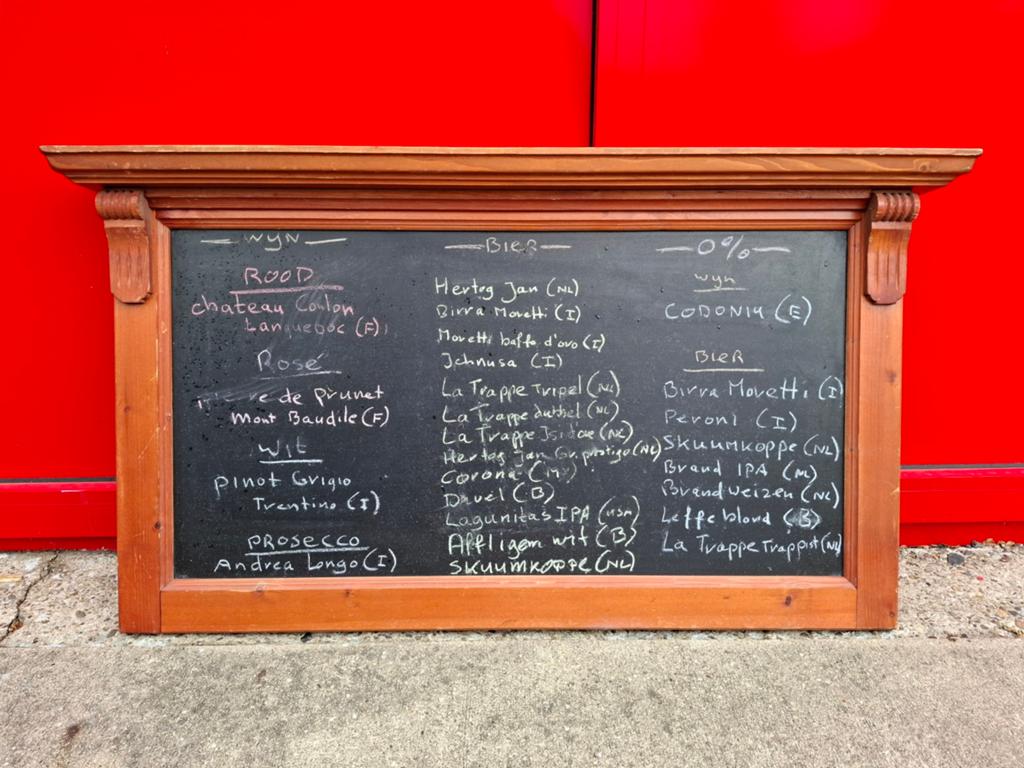 WYN
ROOD
chateau Coulon
Languedoc (F)
Rosé
de Prunet
Mont Baudile (F)
Wit
pinot Grigio
Trentino (I)
PROSECCO
Andrea Longo (I)
BIER
Hertog Jan (NL)
Birra Moretti (I)
Moretti baffo d'oro (I)
Ichnusa (I)
La Trappe Tripel (NL)
La Trappe dubbel (NL)
La Trappe Isid'or (NL)
Hertog Jan Gr. prestige (NL)
Corona (MX)
Duvel (B)
Lagunitas IPA (USA)
Affligem wit (B)
SKUUMKOPPE (NL)
0%
Wyn
CODONIU (E)
BIER
Birra Moretti (I)
Peroni (I)
SKUUMKOPPE (NL)
Brand IPA (NL)
Brand weizen (NL)
Leffe blond (B)
La Trappe Trappist (NL)